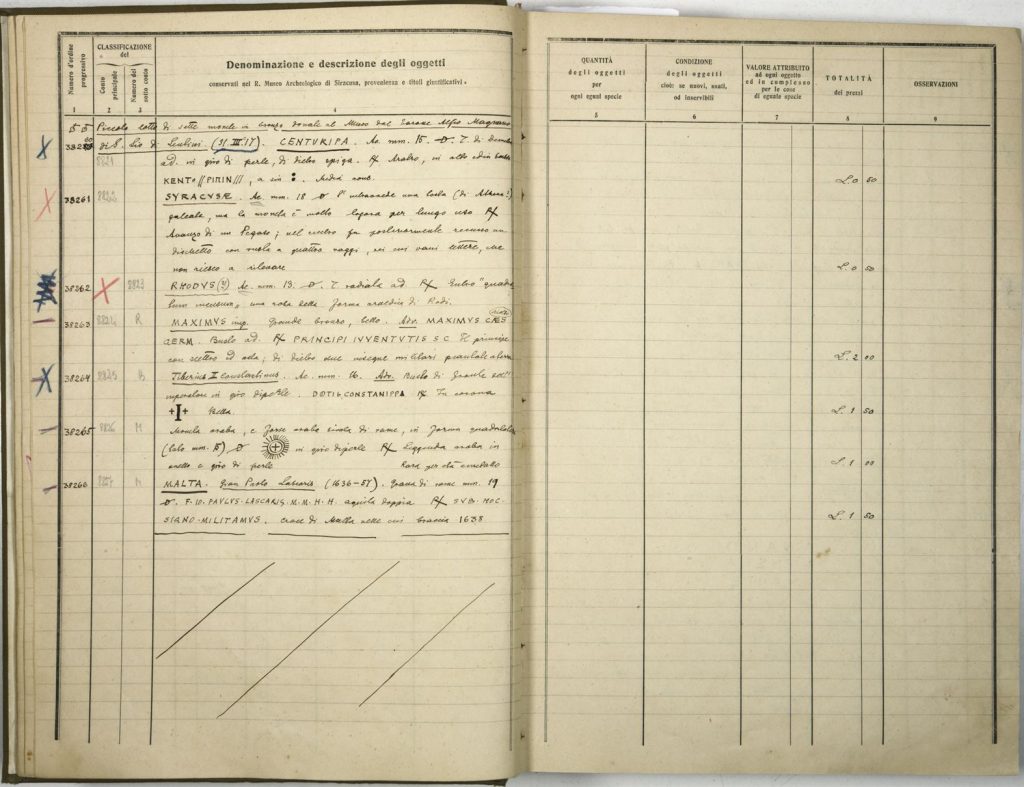 Numero d'ordine progressivo
CLASSIFICAZIONE del
Conto principale
Numero del sotto conto
Denominazione e descrizione degli oggetti
conservati nel R. Museo Archeologico di Siracusa, provenienza e titoli giustificativi.
1 2 3 4
Piccolo lotto di sette monete in bronzo donate al Museo dal Barone Alfio
di S. Lio di (31.III.17). CENTURIPA. Ae. mm. 15. D. T. di
8821 ad. in giro di perle, di dietro spiga. R/ Aratro, in alto
KENTO ||PIPIN|||, a sin :
38261 8822 SYRACVSÆ. Ae. mm. 18 D
galeata, ma la moneta è molto logora per lungo uso R/
Avanzo di un Pegaso; nel centro fu posteriormente
dischetto con ruota a quattro raggi, nei cui vani lettere, che
non riesco a rilevare
38262 8823 RHODVS (?) Ae. mm. 13. D. T. radiata ad. R/ Entro "quadra
tum incusum", una rosa della forma araldica di Rodi.
38263 8824 R MAXIMVS imp. Grande bronzo, bello. Adv. MAXIMVS CAES
GERM. Busto ad. R/ PRINCIPI IVVENTVTIS S C Il principe
con scettro ed asta; di dietro due insegne militari piantate a terra
38264 8825 B Tiberius II Constantinus. Ae. mm. 16. Adv. Busto di fronte dell'
imperatore in giro di perle. DOTIG CONSTANIPPA R/ In corona
+I+ Bella.
38265 8826 M Moneta araba, e forse araba sicula di rame, in forma quadrilatera
(lato mm. 15) D in giro di perle R/ Leggenda araba in
anello e giro di perle Rara per età
38266 M MALTA. Gian Paolo Lascaris (1636-57). Grana di rame mm. 19
D. F. IO. PAVLVS. LASCARIS. M. M. H. H. aquila doppia R/ SVB. HOC.
SIGNO. MILITAMVS. croce di Malta nelle cui braccia 1638
QUANTITÀ
degli oggetti
per
ogni egual specie
CONDIZIONE
degli oggetti
cioè: se nuovi, usati,
od inservibili
VALORE ATTRIBUITO
ad ogni oggetto
ed in complesso
per le cose
di eguale specie
TOTALITÀ
dei prezzi
OSSERVAZIONI
5 6 7 8 9
L. 0 50
L. 0 50
L. 2 00
L. 1 50
L. 1 00
L. 1 50